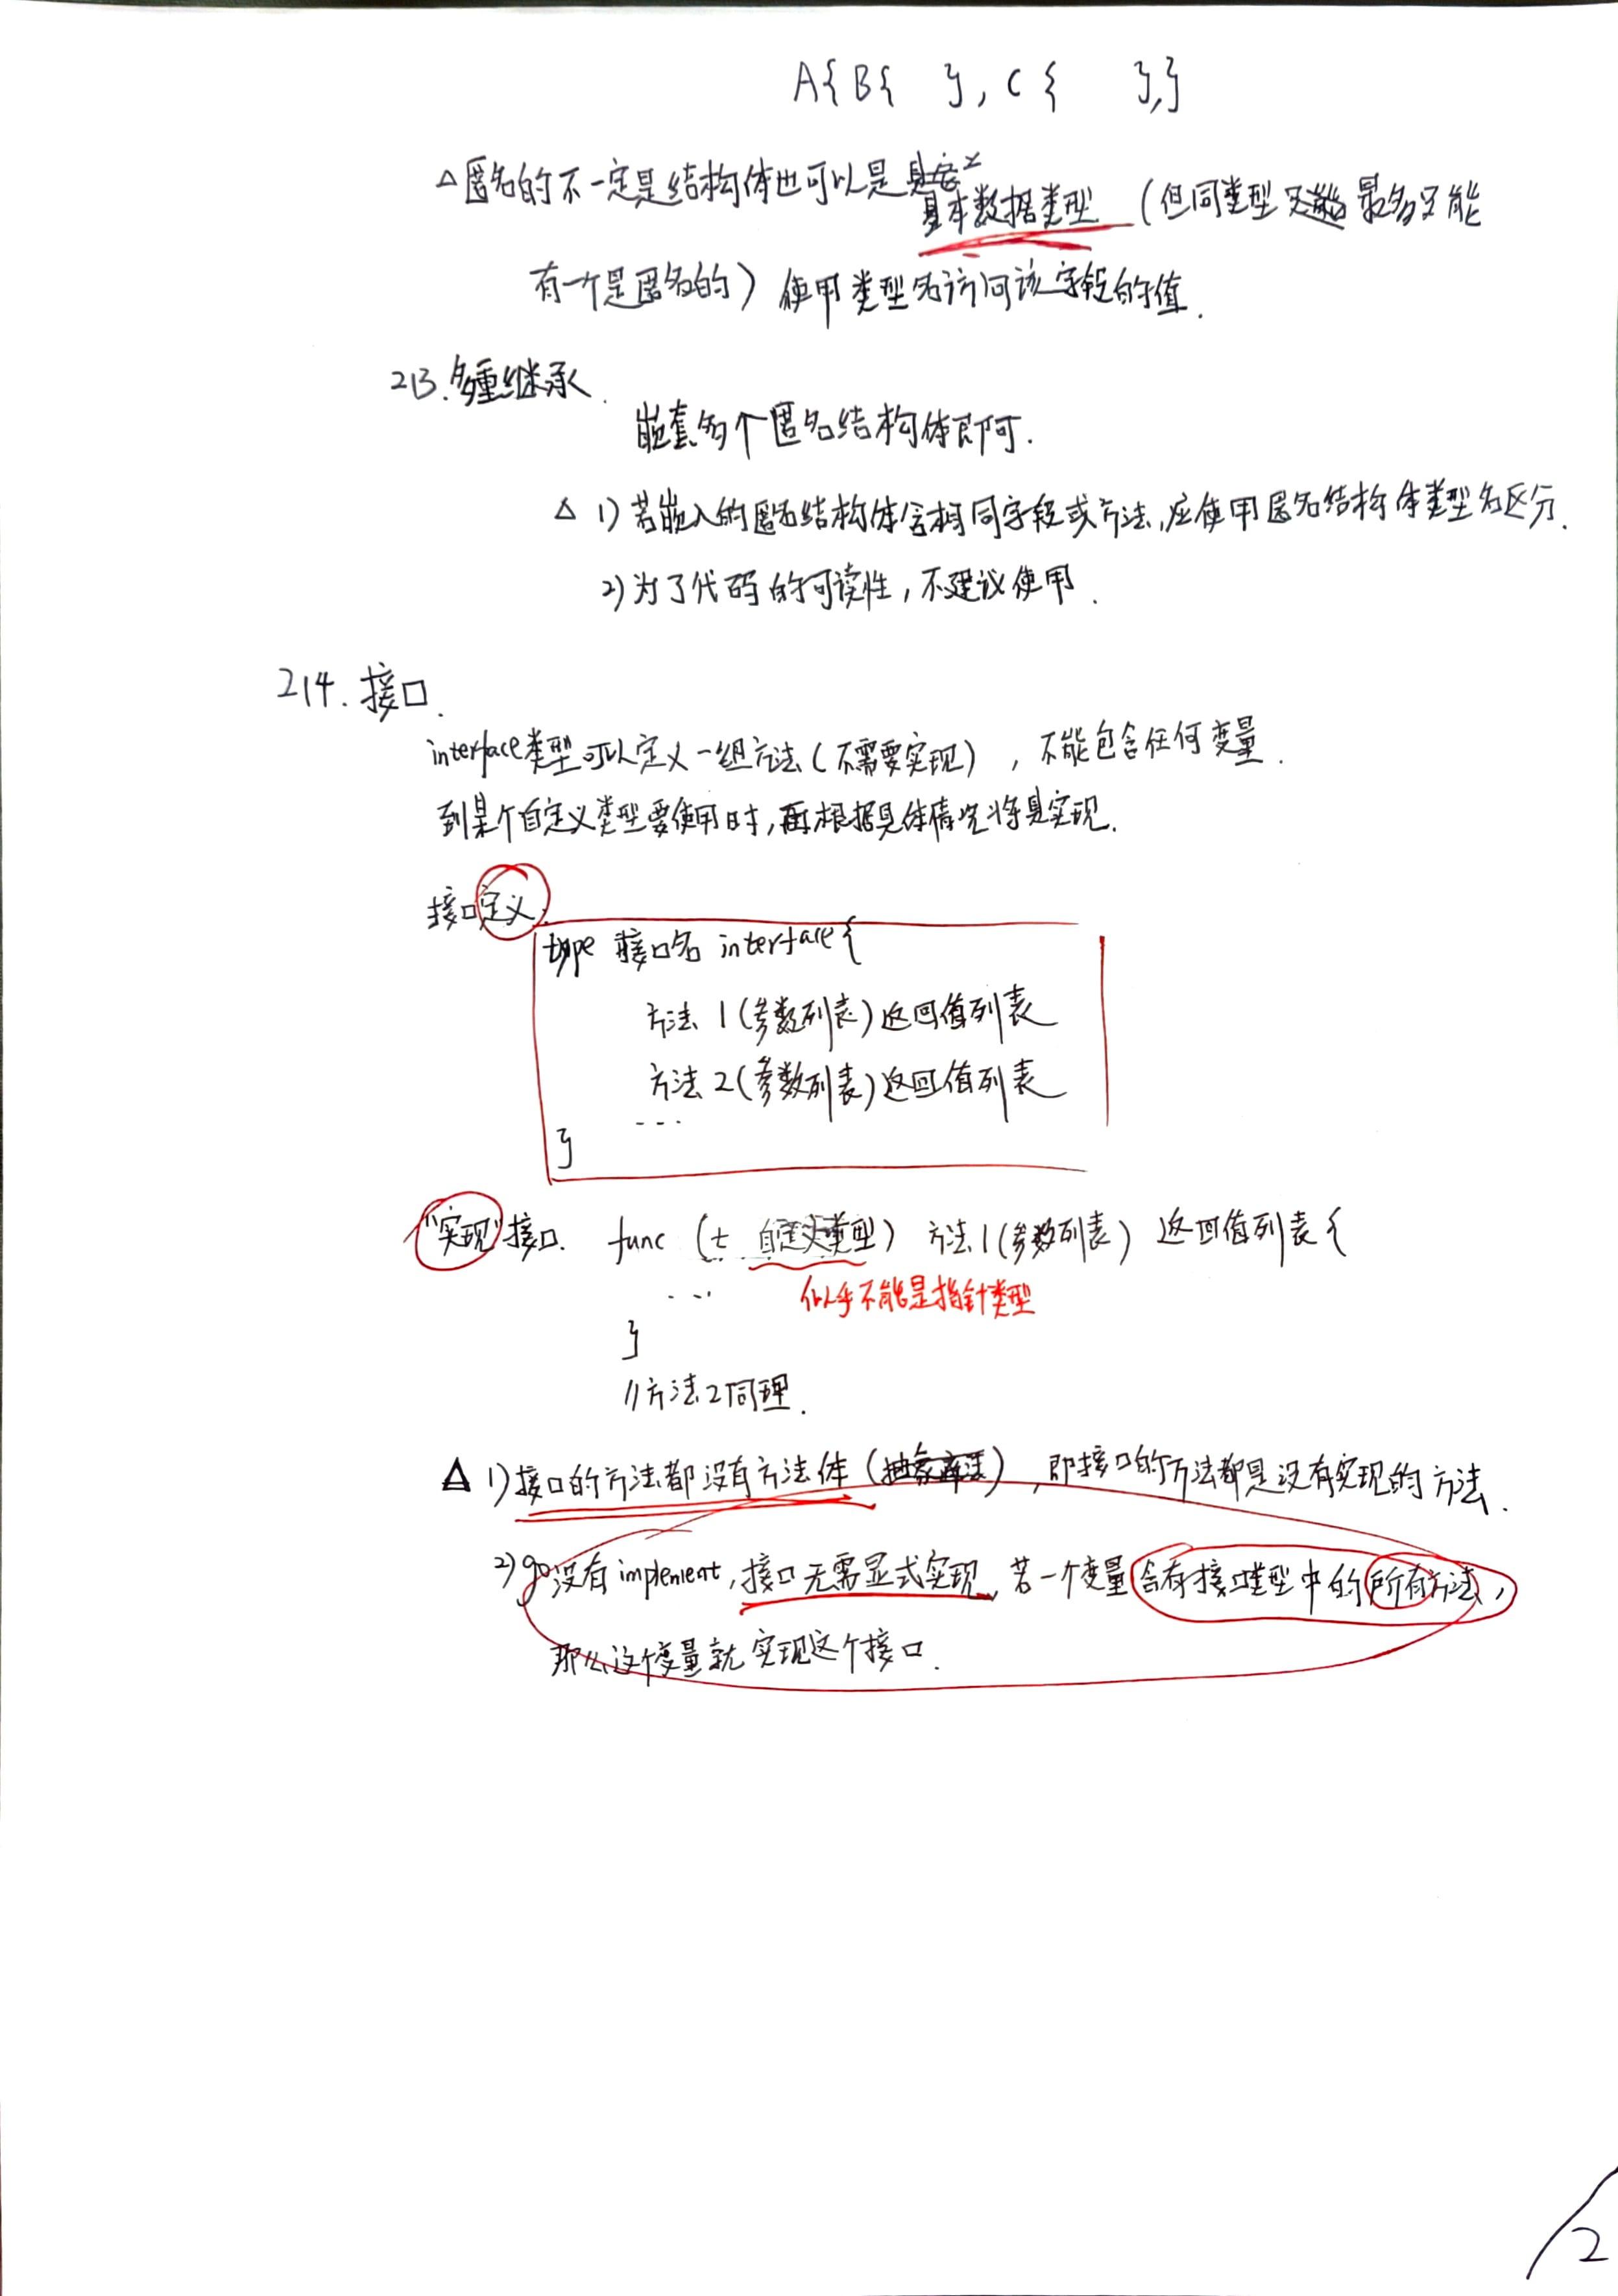 A{B{ },C{ },}
△匿名的不一定是结构体也可以是
基本数据类型(但同类型最多只能
有一个是匿名的)使用类型名访问该字段的值.
213.多重继承.
嵌套多个匿名结构体即可.
△ 1)若嵌入的匿名结构体含相同字段或方法,应使用匿名结构体类型名区分.
2)为了代码的可读性,不建议使用.
214.接口.
interface类型可以定义一组方法(不需要实现),不能包含任何变量.
到某个自定义类型要使用时,再根据具体情况将其实现.
接口定义.
type 接口名 interface{
方法1(参数列表)返回值列表
方法2(参数列表)返回值列表
...
}
"实现"接口. func (t 自定义类型) 方法1(参数列表) 返回值列表{
...
似乎不能是指针类型
}
//方法2同理.
△ 1)接口的方法都没有方法体(),即接口的方法都是没有实现的方法.
2)go没有implement,接口无需显式实现,若一个变量含有接口类型中的所有方法,
那么这个变量就实现这个接口.
2